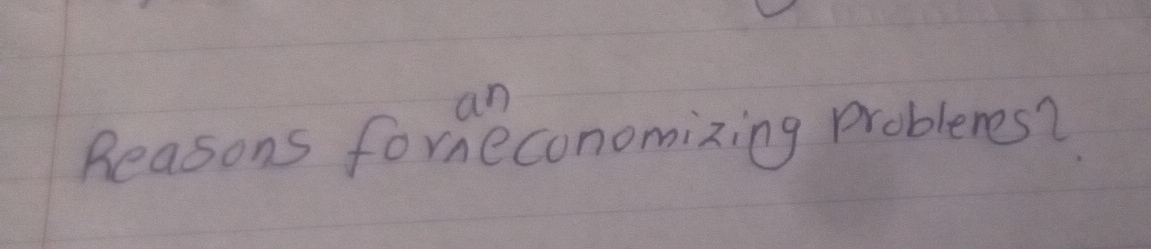 Reasons for an economizing problems?